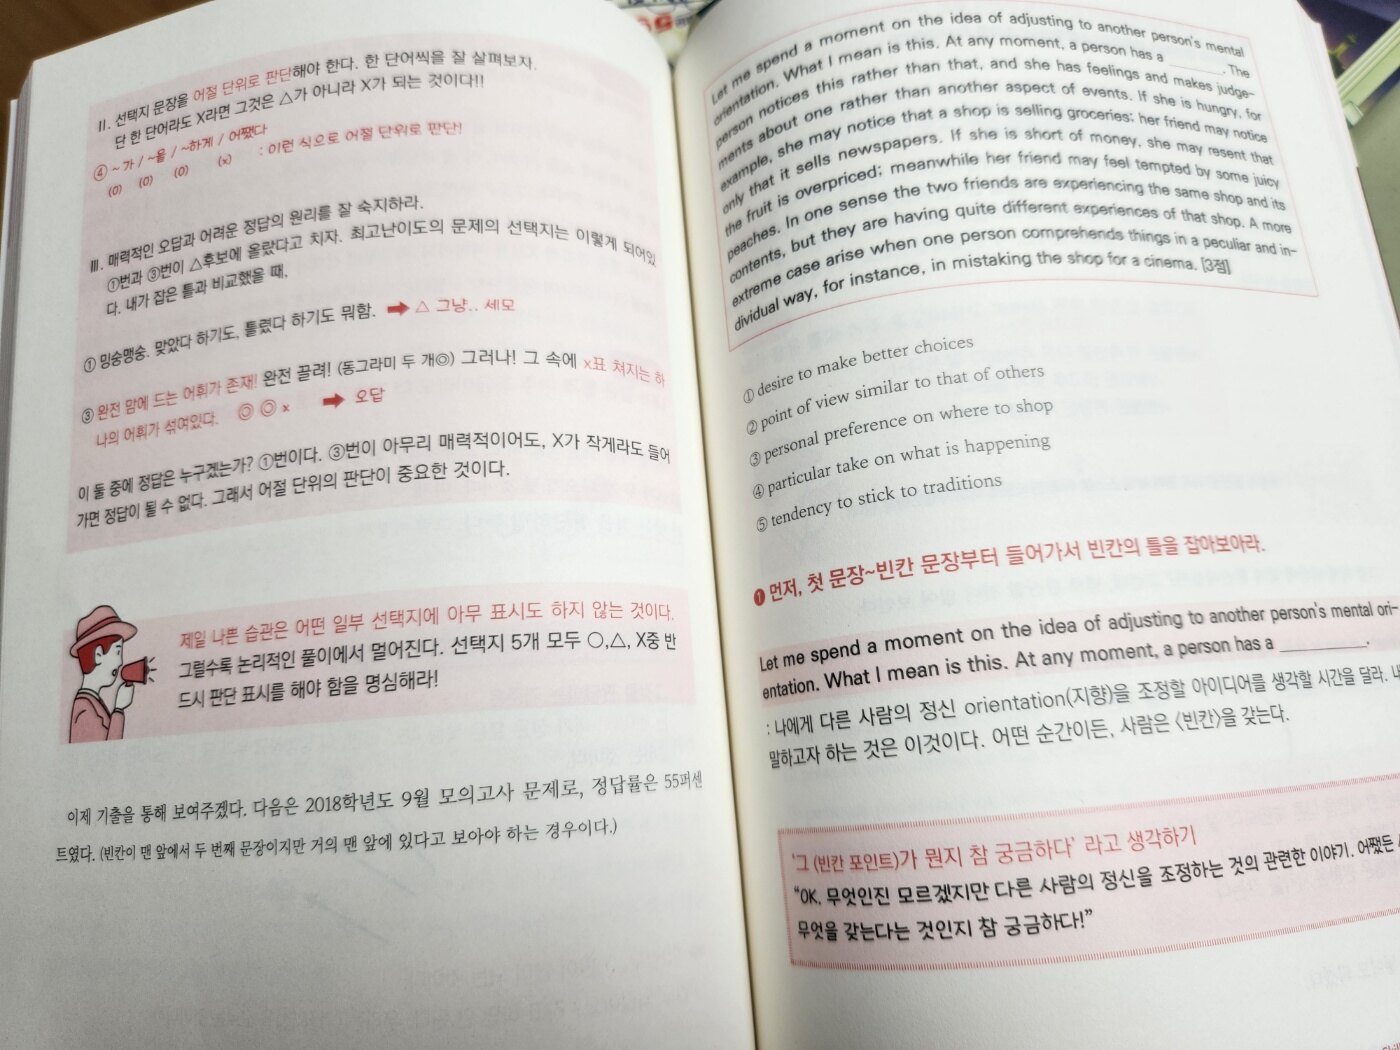 II. 선택지 문장을 어절 단위로 판단해야 한다. 한 단어씩을 잘 살펴보자.
단 한 단어라도 X라면 그것은 △가 아니라 X가 되는 것이다!!
④ ~가 / ~을 / ~하게 / 어쨌다
(O) (O) (O) (x) : 이런 식으로 어절 단위로 판단!
III. 매력적인 오답과 어려운 정답의 원리를 잘 숙지하라.
①번과 ③번이 △후보에 올랐다고 치자. 최고난이도의 문제의 선택지는 이렇게 되어있
다. 내가 잡은 틀과 비교했을 때,
① 밍숭맹숭. 맞았다 하기도, 틀렸다 하기도 뭐함. ➡ △ 그냥.. 세모
③ 완전 맘에 드는 어휘가 존재! 완전 끌려! (동그라미 두 개◎) 그러나! 그 속에 x표 쳐지는 하
나의 어휘가 섞여있다. ◎ ◎ x ➡ 오답
이 둘 중에 정답은 누구겠는가? ①번이다. ③번이 아무리 매력적이어도, X가 작게라도 들어
가면 정답이 될 수 없다. 그래서 어절 단위의 판단이 중요한 것이다.
제일 나쁜 습관은 어떤 일부 선택지에 아무 표시도 하지 않는 것이다.
그럴수록 논리적인 풀이에서 멀어진다. 선택지 5개 모두 ○,△, X중 반
드시 판단 표시를 해야 함을 명심해라!
이제 기출을 통해 보여주겠다. 다음은 2018학년도 9월 모의고사 문제로, 정답률은 55퍼센
트였다. (빈칸이 맨 앞에서 두 번째 문장이지만 거의 맨 앞에 있다고 보아야 하는 경우이다.)
Let me spend a moment on the idea of adjusting to another person's mental
orientation. What I mean is this. At any moment, a person has a ________. The
person notices this rather than that, and she has feelings and makes judge-
ments about one rather than another aspect of events. If she is hungry, for
example, she may notice that a shop is selling groceries; her friend may notice
only that it sells newspapers. If she is short of money, she may resent that
the fruit is overpriced; meanwhile her friend may feel tempted by some juicy
peaches. In one sense the two friends are experiencing the same shop and its
contents, but they are having quite different experiences of that shop. A more
extreme case arise when one person comprehends things in a peculiar and in-
dividual way, for instance, in mistaking the shop for a cinema. [3점]
① desire to make better choices
② point of view similar to that of others
③ personal preference on where to shop
④ particular take on what is happening
⑤ tendency to stick to traditions
❶ 먼저, 첫 문장~빈칸 문장부터 들어가서 빈칸의 틀을 잡아보아라.
Let me spend a moment on the idea of adjusting to another person's mental ori-
entation. What I mean is this. At any moment, a person has a ________.
: 나에게 다른 사람의 정신 orientation(지향)을 조정할 아이디어를 생각할 시간을 달라. 내
말하고자 하는 것은 이것이다. 어떤 순간이든, 사람은 <빈칸>을 갖는다.
'그 (빈칸 포인트)가 뭔지 참 궁금하다' 라고 생각하기
“OK. 무엇인진 모르겠지만 다른 사람의 정신을 조정하는 것의 관련한 이야기. 어쨌든
무엇을 갖는다는 것인지 참 궁금하다!”